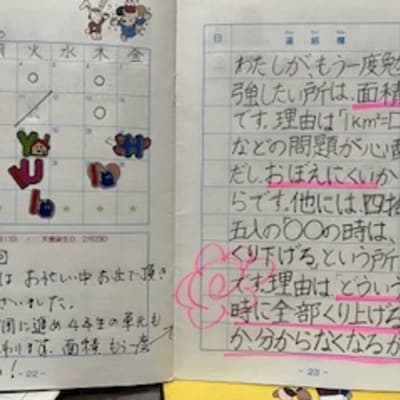 火 水 木 金
天皇誕生日 2月23日
はお忙しい中お出で頂き
ざいました。
に進め4年生の単元も
わります。面積もう一度
!
-22-
日 連絡欄
わたしが、もう一度勉
強したい所は、面積
です。理由は「1km²=□
などの問題が心配
だし、おぼえにくいか
らです。他には、四捨
五人の「〇〇の時は、
くり下げる」という所
です。理由は「どういう
時に全部くり上げる
か、分からなくなるか
-23-